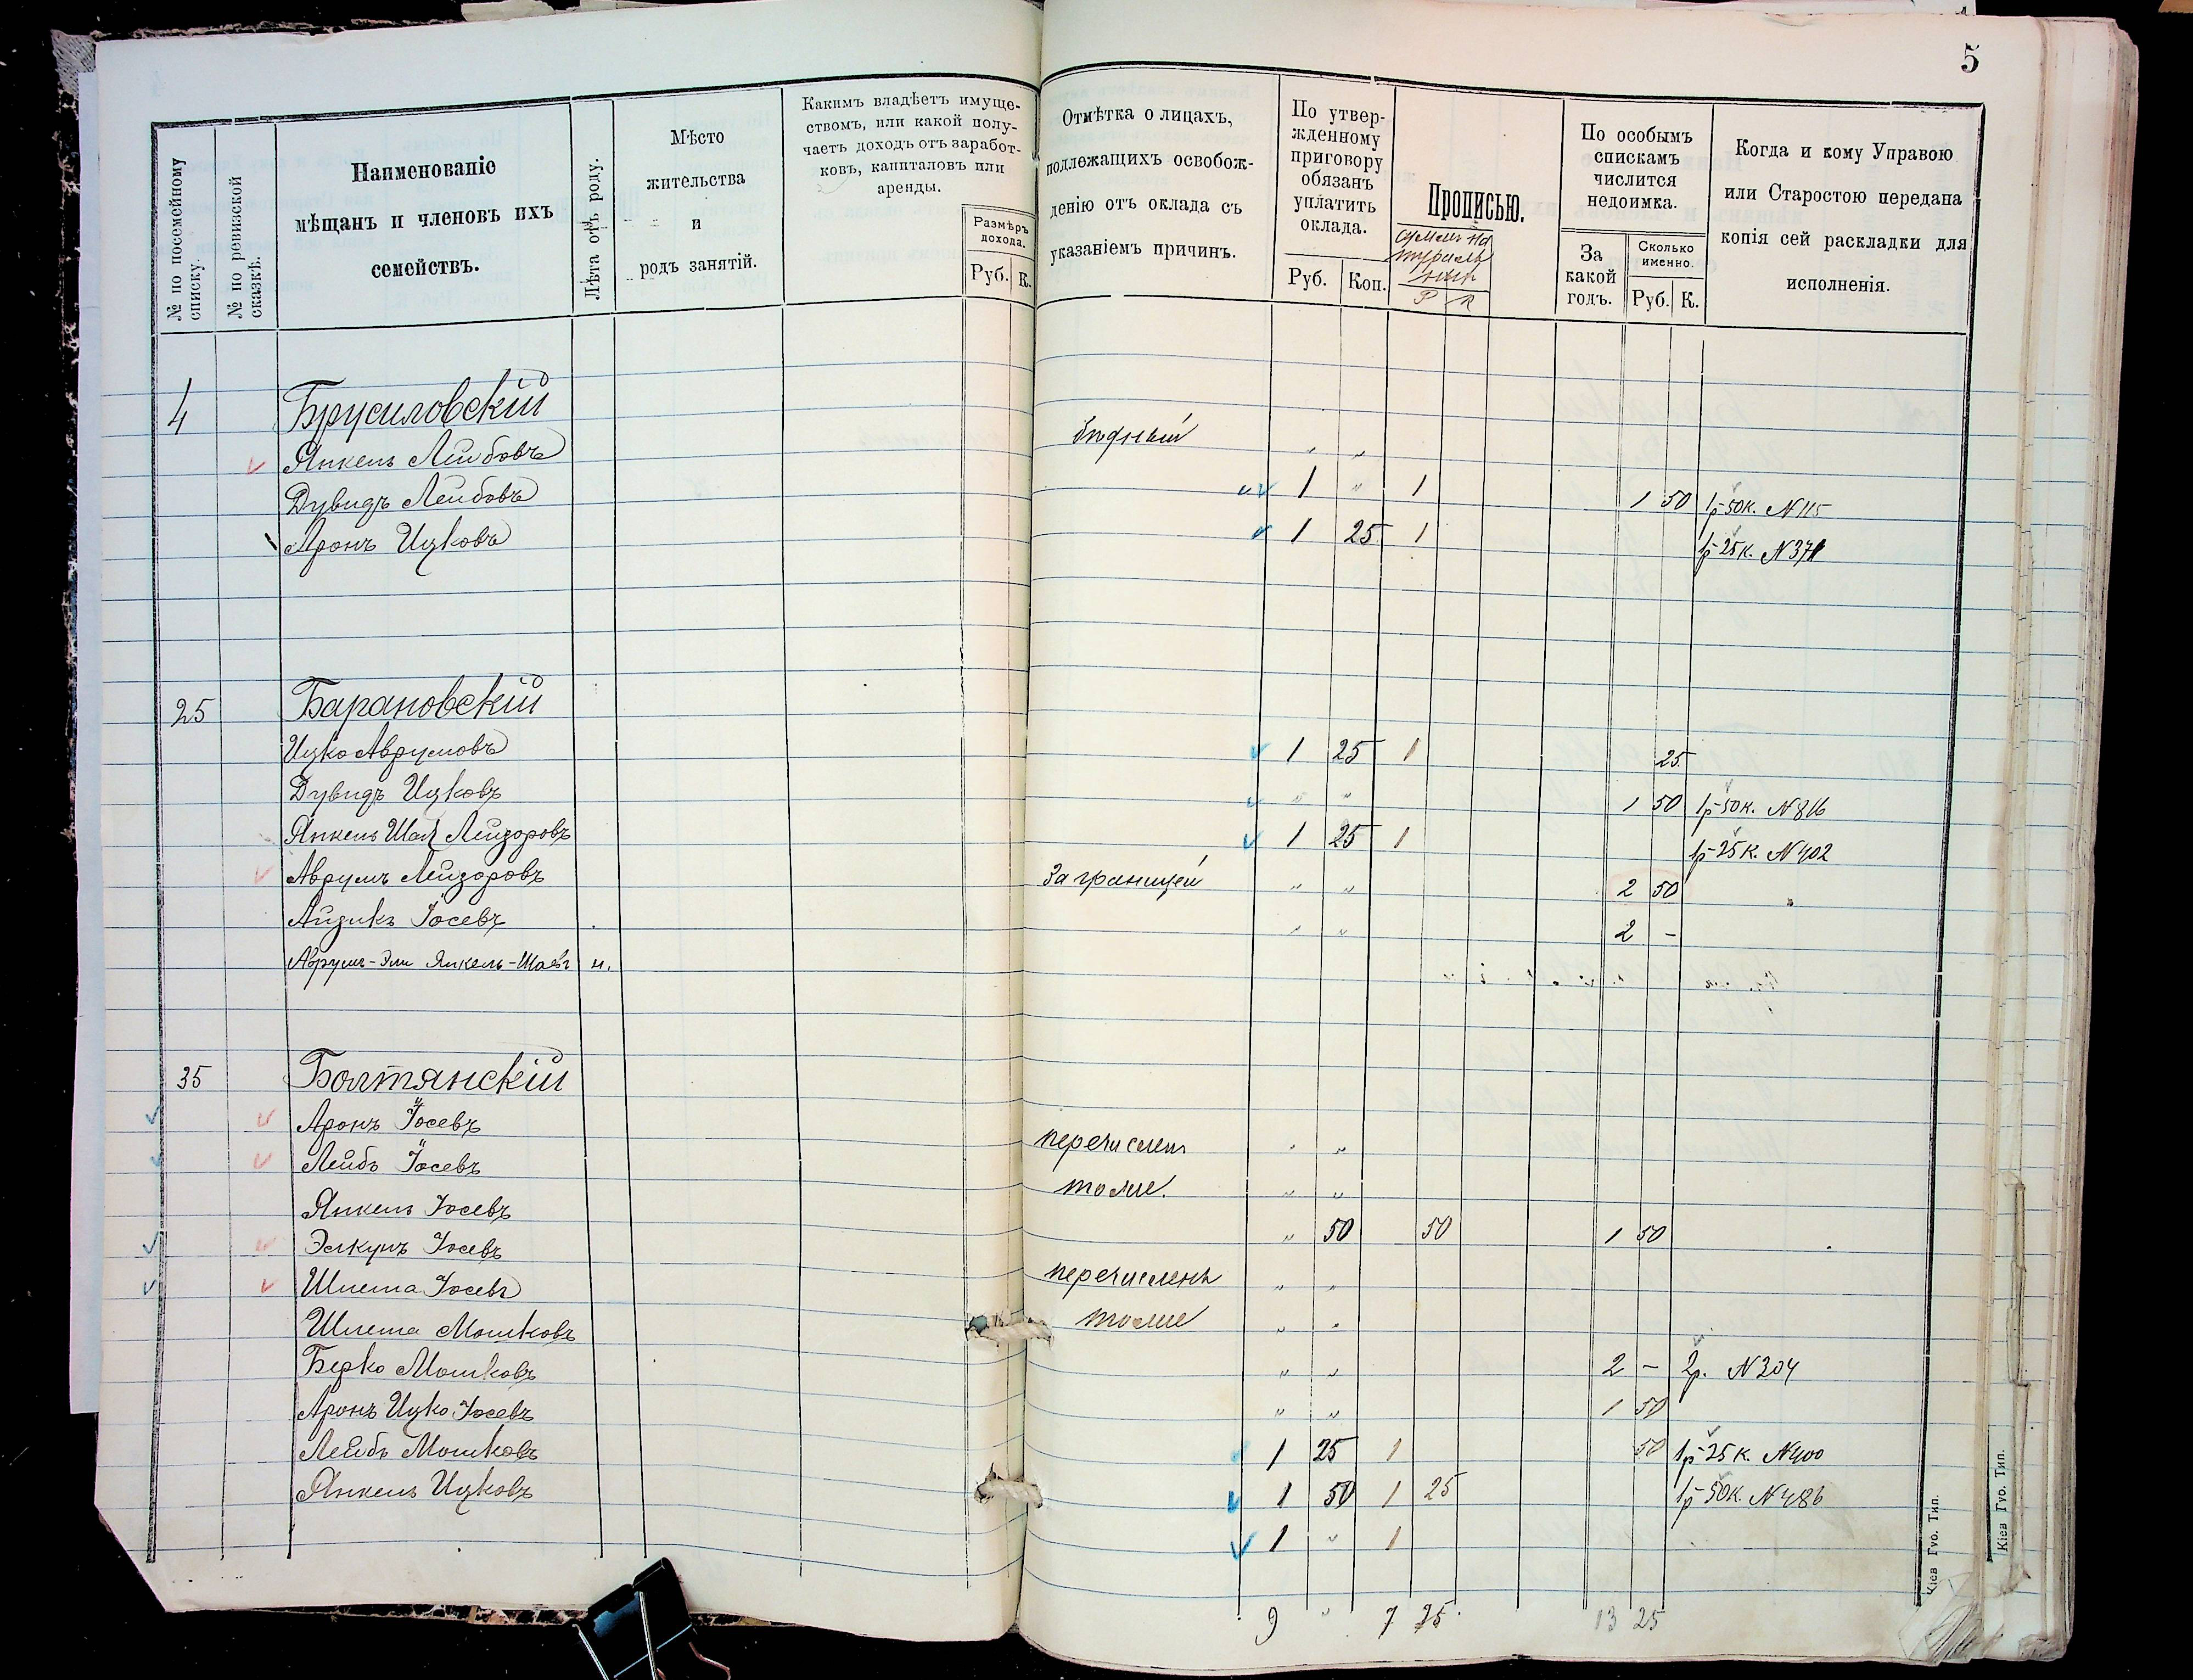 5
№ по посемейному списку.
№ по ревизской сказкѣ.
Наименованіе мѣщанъ и членовъ ихъ семействъ.
Лѣта отъ роду.
Мѣсто жительства и родъ занятій.
Какимъ владѣетъ имуществомъ, или какой получаетъ доходъ отъ заработковъ, капиталовъ или аренды.
Размѣръ дохода.
Руб. К.
Отмѣтка о лицахъ, подлежащихъ освобожденію отъ оклада съ указаніемъ причинъ.
По утвержденному приговору обязанъ уплатить оклада.
Руб. Коп.
Прописью.
Р К
По особымъ спискамъ числится недоимка.
За какой годъ.
Сколько именно.
Руб. К.
Когда и кому Управою или Старостою передана копія сей раскладки для исполненія.
4 Брусиловскій
Янкель Лейбовъ бѣдный " "
Дувидъ Лейбовъ 1 " 1 1 50 1р 50к. N 115
Аронъ Ицковъ 1 25 1 1р 25к. N 371
25 Барановскій
Ицко Аврумовъ 1 25 1 25
Дувидъ Ицковъ " " 1 50 1р 50к. N 816
Янкель Шая Лейзоровъ 1 25 1 1р 25к. N 402
Аврумъ Лейзоровъ За границей " " 2 50
Айзикъ Іосевъ " " 2 -
Аврумъ-Эли Янкель-Шаевъ н.
35 Болтянскій
Аронъ Іосевъ перечисленъ " "
Лейбъ Іосевъ тоже. " "
Янкель Іосевъ " 50 50 1 50
Элкунъ Іосевъ перечисленъ " "
Шлема Іосевъ тоже " "
Шлема Мошковъ " " 2 - 2р. N 304
Берко Мошковъ " " 1 50
Аронъ Ицко Іосевъ 1 25 1 50 1р 25к. N 400
Лейбъ Мошковъ 1 50 1 25 1р 50к. N 486
Янкель Ицковъ 1 " 1
9 " 7 75 13 25
Кіев Гуо. Тип.
Кіев Гуо. Тип.